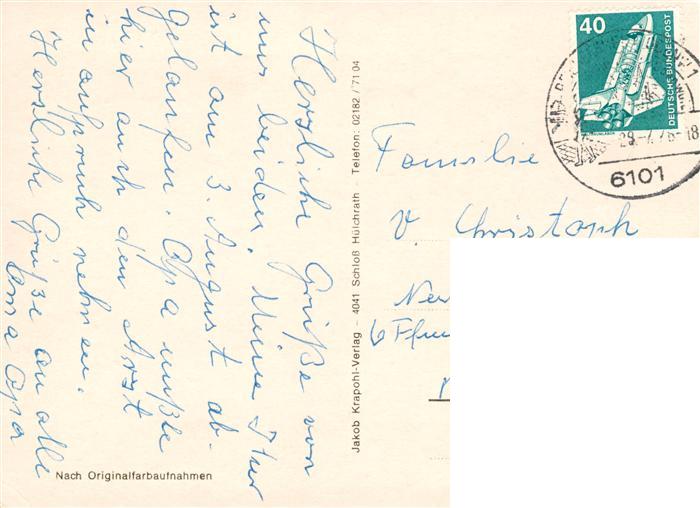 Herzliche Grüße von
uns beiden. Meine Kur
ist am 3. August ab-
gelaufen. Opa mußte
hier auch den Arzt
in anspruch nehmen.
Herzliche Grüße an alle
Oma Opa
Nach Originalfarbaufnahmen
Jakob Krapohl-Verlag - 4041 Schloß Hülchrath - Telefon: 02182 / 71 04
40
DEUTSCHE BUNDESPOST
6101
Familie
V. Christoph
6 Ffm